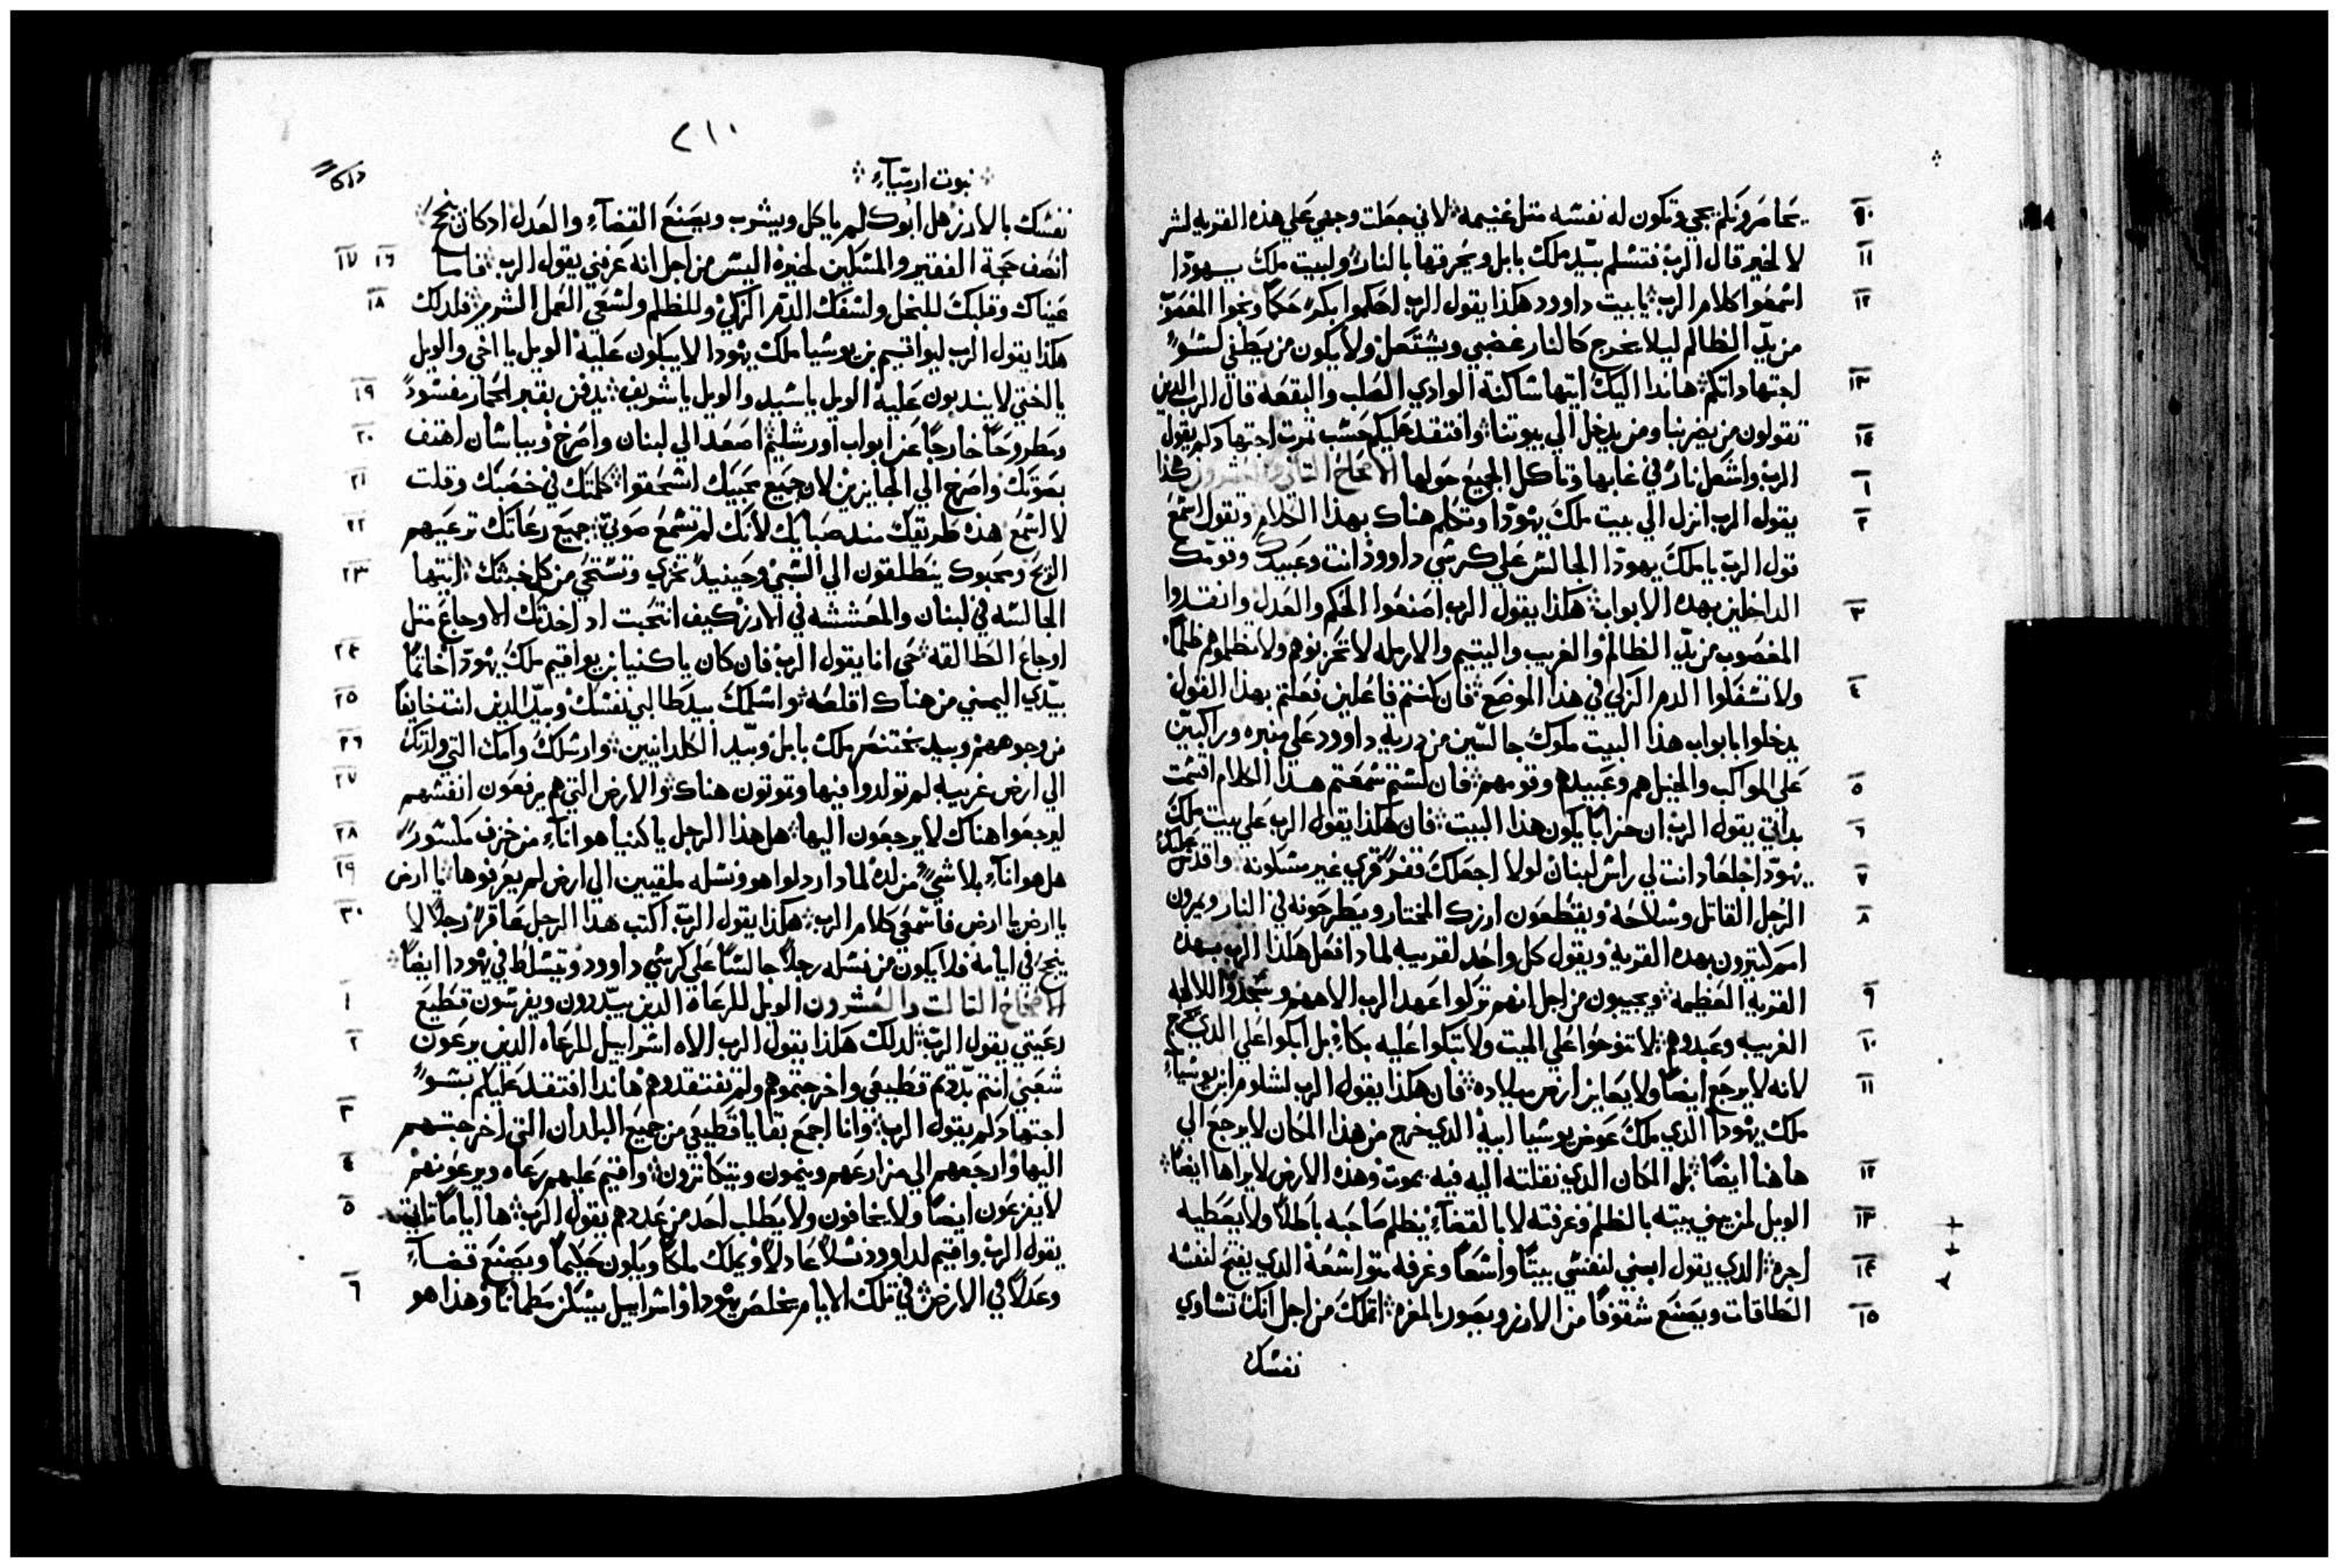 يحاصرونكم يحيى وتكون له نفسه مثل غنيمه لاني جعلت وجهي علي هذه القريه لشر
١٠
لا لخير قال الرب فتسلم بيد ملك بابل ويحرقها بالنار ولبيت ملك يهودا
١١
اسمعوا كلام الرب يا بيت داوود هكذا يقول الرب احكموا بكره حكماً ونجوا المغصوب
١٢
من يد الظالم ليلا يخرج كالنار غضبي ويشتعل ولا يكون من يطفي لسو
اجتهاداتكم هاندا اليك ايتها ساكنة الوادي الصلب والبقعه قال الرب الدين
١٣
تقولون من يضربنا ومن يدخل الي بيوتنا وافتقد عليكم حسب ثمرت اجتهادكم يقول
١٤
الرب واشعل نار في غابها وتاكل الجميع حولها الاصحاح التاني والعشرون هكذا
١
يقول الرب انزل الي بيت ملك يهودا وتكلم هناك بهذا الكلام وتقول اسمع
٢
قول الرب يا ملك يهودا الجالس علي كرسي داوود انت وعبيدك وقومك
الداخلين بهده الابواب هكذا يقول الرب اصنعوا الحكم والعدل وانقدوا
٣
المغصوب من يد الظالم والغريب واليتيم والارمله لا تحزنوهم ولا تظلموهم ظلماً
ولا تسفكوا الدم الزكي في هذا الموضع فان كنتم فاعلين فعلتم بهذا القول
٤
يدخلوا بابواب هذا البيت ملوك جالسين من درية داوود علي منبره وراكبين
علي المواكب والخيل هم وعبيدهم وقومهم فان لستم سمعتم هذا الكلام اقسمت
٥
بداتي يقول الرب ان خراباً يكون هذا البيت فان هكذا يقول الرب علي بيت ملك
٦
يهودا جلعاد انت لي راس لبنان لولا اجعلك قفر قري غير مسكونه واقدس عليك
٧
الرجل القاتل وسلاحه ويقطعون ارزك المختار ويطرحونه في النار ويمرون
٨
امم كتيرون بهده القريه ويقول كل واحد لقريبه لمادا فعل هكذا الرب بهذه
القريه العظيمه ويجيبون من اجل انهم تركوا عهد الرب الاههم وسجدوا للالهه
٩
الغريبه وعبدوهم لا تنوحوا علي الميت ولا تبكوا عليه بكاء بل ابكوا علي الدي يخرج
١٠
لانه لا يرجع ايضاً ولا يعاين ارض ميلاده فان هكذا يقول الرب لشلوم ابن يوشياء
١١
ملك يهودا الدي ملك عوض يوشيا ابيه الدي خرج من هذا المكان لا يرجع الي
هاهنا ايضاً بل المكان الدي نقلته اليه فيه يموت وهده الارض لا يراها ايضاً
١٢
الويل لمن يبني بيته بالظلم وغرفته لا بالقضاء يظلم صاحبه باطلاً ولا يعطيه
١٣
اجره الدي يقول ابني لنفسي بيتاً واسعاً وغرفه متواسعة الدي يفتح لنفسه
١٤
الطاقات ويصنع سقوفاً من الارز ويصور بالمغره اتملك من اجل انك تساوي
١٥
نفسك
٢١٠
نبوت ارمياء
نفسك بالارز هل ابوك لم ياكل ويشرب ويصنع القضاء والعدل ادكان ينجح
انصف حجة الفقير والمسكين لخيره اليس من اجل انه عرفني يقول الرب فاما
١٦ ١٧
عيناك وقلبك للبخل ولسفك الدم الزكي وللظلم ولسعي العمل الشرير فلدلك
١٨
هكذا يقول الرب ليواقيم بن يوشيا ملك يهودا لا يبكون عليه الويل يا اخي والويل
يا اختي لا يندبون عليه الويل يا سيد والويل يا شريف يدفن بقبر الحمار مفسود
١٩
ومطروحاً خارجاً عن ابواب اورشليم اصعد الي لبنان واصرخ وبباسان اهتف
٢٠
بصوتك واصرخ الي الجايزين لان جميع محبيك انسحقوا كلمتك في خصبك وقلت
٢١
لا اسمع هده طريقك مند صبائك لانك لم تسمع صوتي جميع رعاتك ترعيهم
٢٢
الريح ومحبوك ينطلقون الي السبي وحينيد تخزي وتستحي من كل خبثك ايتها
٢٣
الجالسه في لبنان والمعششه في الارز كيف انتحبت اد اخدتك الاوجاع متل
اوجاع الطالقه حي انا يقول الرب فان كان ياكنيا بن يواقيم ملك يهودا خاتماً
٢٤
بيدي اليمني من هناك اقلعه واسلمك بيد طالبي نفسك وبيد الدين انت خايفاً
٢٥
من وجوههم وبيد بختنصر ملك بابل وبيد الكلدانيين وارسلك وامك التي ولدتك
٢٦
الي ارض غريبه لم تولدوا فيها وتموتون هناك والارض التي هم يرفعون انفسهم
٢٧
ليرجعوا هناك لا يرجعون اليها هل هذا الرجل ياكنيا هو اناء من خزف مكسور
٢٨
هل هو اناء بلا شي من لده لمادا ردلوا هو ونسله ملقيين الي ارض لم يعرفوها يا ارض
٢٩
يا ارض يا ارض فاسمعي كلام الرب هكذا يقول الرب اكتب هدا الرجل عاقر رجلاً لا
٣٠
ينجح في ايامه فلا يكون من نسله رجلاً جالساً علي كرسي داوود وتيسلط في يهودا ايضاً
الاصحاح التالت والعشرون الويل للرعاه الدين يبددون ويفرسون قطيع
١
رعيتي يقول الرب لدلك هكذا يقول الرب الاه اسراييل للرعاه الدين يرعون
٢
شعبي انتم بددتم قطيعي واخرجتموهم ولم تفتقدوهم هاندا افتقد عليكم بسو
اجتهادكم يقول الرب وانا اجمع بقايا قطيعي من جميع البلدان التي اخرجتهم
٣
اليها وارجعهم الي مزارعهم وينمون ويتكاثرون واقيم عليهم رعاه ويرعونهم
٤
لا يفزعون ايضاً ولا يخافون ولا يطلب احد من عددهم يقول الرب ها اياماً تاتي
٥
يقول الرب واقيم لداوود نسلاً عادلاً ويملك ملكاً ويكون حكيماً ويصنع قضاء
وعدلاً في الارض في تلك الايام يخلص يهودا واسراييل يسكن مطماناً وهذا هو
٦